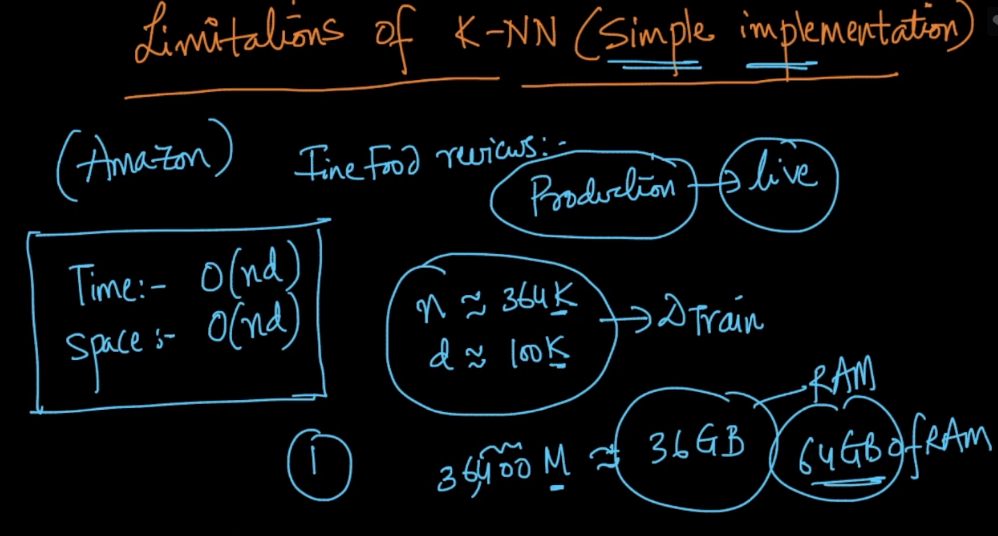 Limitations of K-NN (Simple implementation)
(Amazon) Fine Food reviews:-
Production → live
Time:- O(nd)
Space:- O(nd)
n ≈ 364K
d ≈ 100K
→ DTrain
RAM
1
36,400 M ≈ 36GB 64GB of RAM